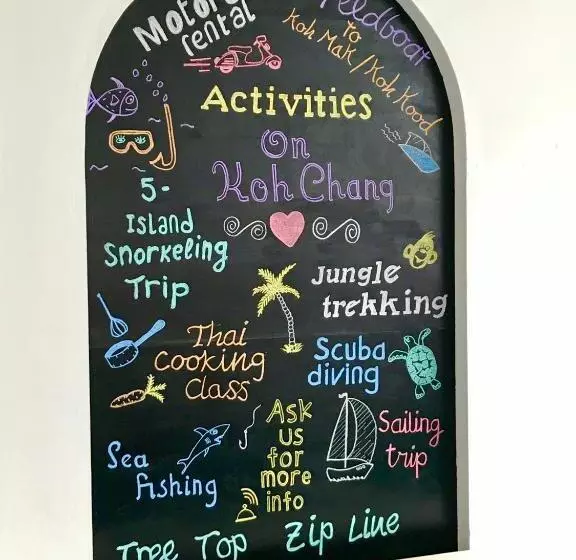 rental
to
Koh Mak / Koh Kood
Activities
On
Koh Chang
5-
Island
Snorkeling
Trip
Jungle
trekking
Thai
Cooking
Class
Scuba
diving
Ask
us
for
more
info
Sailing
trip
Sea
fishing
Tree Top Zip Line